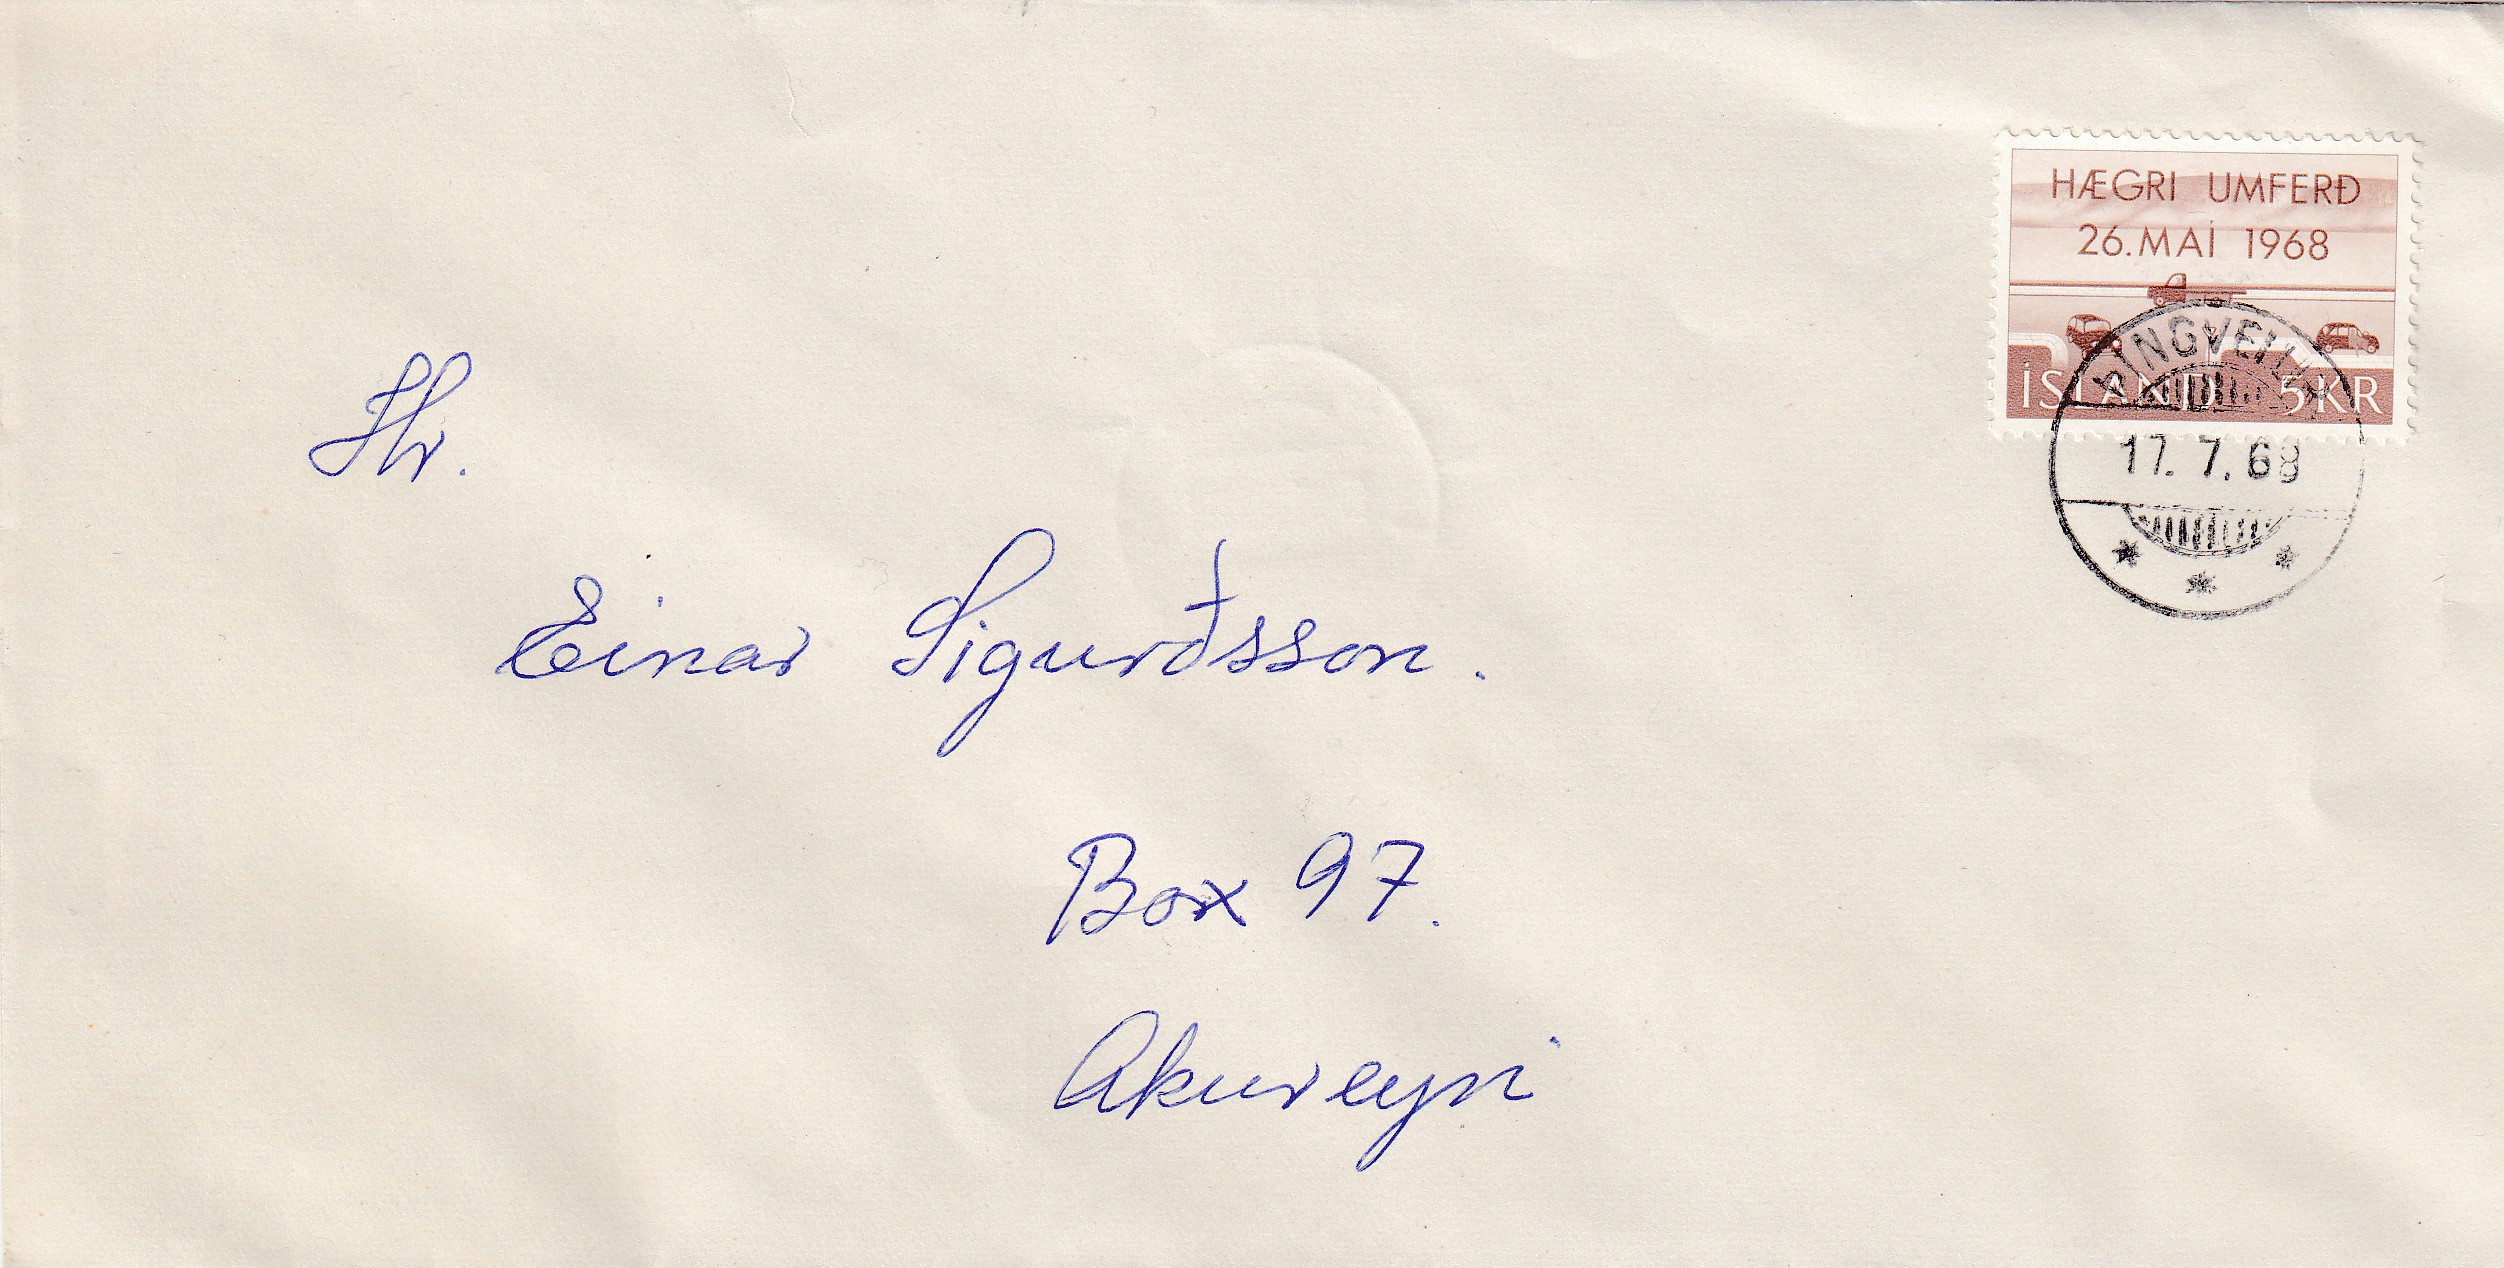 HÆGRI UMFERÐ
26. MAÍ 1968
ÍSLAND 5 KR
ÞINGVELLIR
17. 7. 68
Hr.
Einar Sigurðsson.
Box 97.
Akureyri